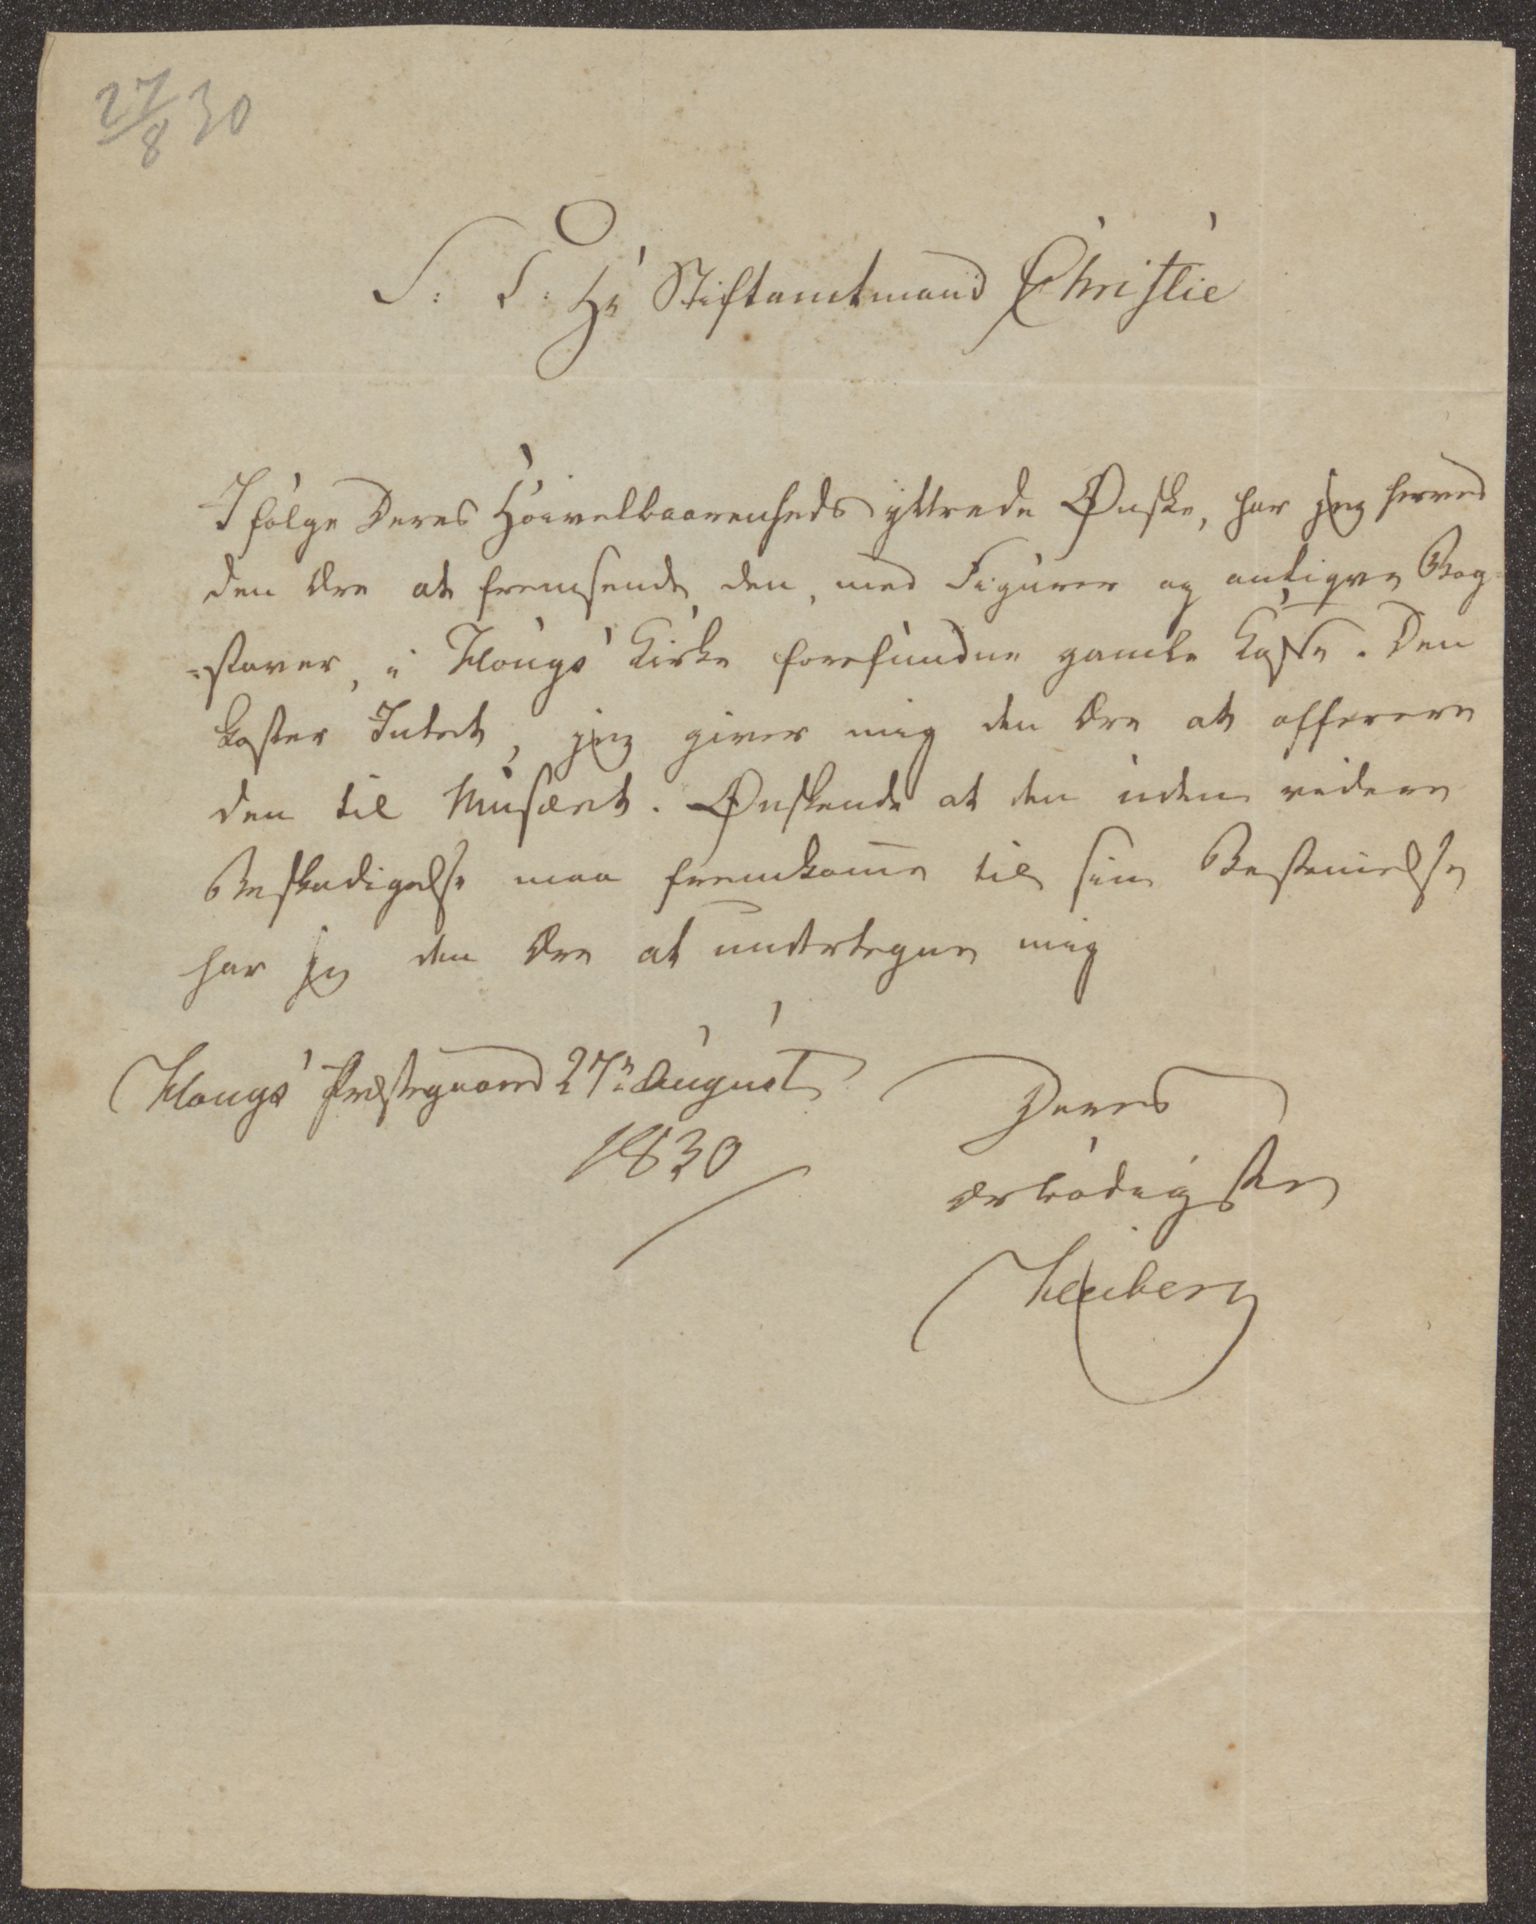 27/8 30
S: T: Hr Stiftamtmand Christie
Ifølge Deres Høivelbaarenheds yttrede Ønske, har jeg herved
den Ære at fremsende den, med Figurer og antiqve Bog-
=staver, i Hougs Kirke forefundne gamle Kaste. Den
koster Intet, jeg giver mig den Ære at offerere
den til Musæet. Ønskende at den uden videre
Beskadigelse maa fremkom̅e til sin Bestemelse
har jeg den Ære at undertegne mig
Hougs Præstegaard 27n August
1830
Deres
ærbødigste